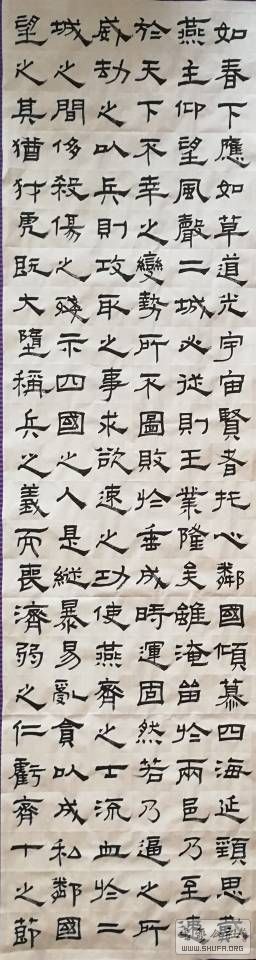 如春下應如草道光宇宙賢者托心鄰國傾慕四海延頸思戴
燕主仰望風聲二城必從則王業隆矣雖淹留於兩邑乃至速
於天下不幸之變勢所不圖敗於垂成時運固然若乃逼之所
威劫之以兵則攻取之事求欲速之功使燕齊之士流血於二
城之間侈殺傷之殘示四國之人是縱暴易亂貪以成私鄰國
望之其猶犲虎既大墮稱兵之義而喪濟弱之仁虧齊十之節
WWW.SHUFA.ORG